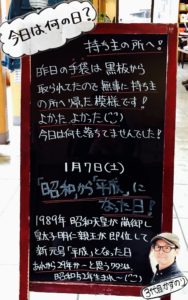 今日は何の日？
持ち主の所へ！
昨日の手袋は黒板から
取られてたので無事に持ち主
の所へ帰た模様です！
よかった、よかった(^^)
今日は何も落ちてませんでした！
1月7日(土)
「昭和から「平成」に
なった日！
1989年 昭和天皇が崩御し
皇太子明仁親王が即位して
新元号「平成」となった日
あれから28年か～と思うワタシは、
昭和52年生まれ～(^^)
3代目かずのり